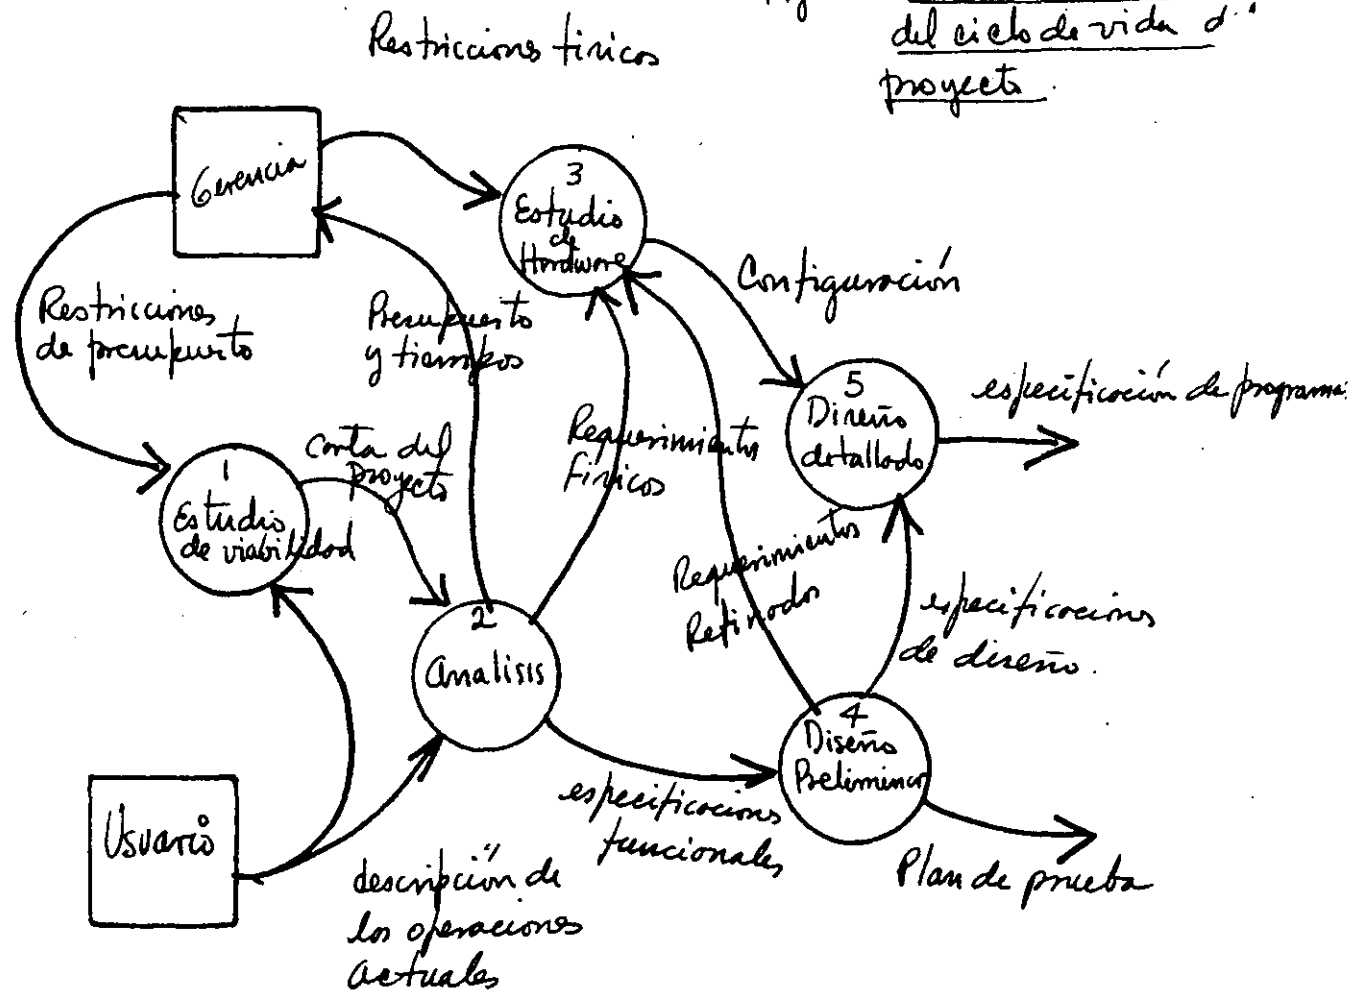 del ciclo de vida d
proyecto.
Restricciones físicos
Gerencia
3
Estudio
de
Hardware
Configuración
Restricciones
de presupuesto
Presupuesto
y tiempos
5
Diseño
detallado
especificación de programa
carta del
proyecto
1
Estudio
de viabilidad
Requerimientos
Físicos
Requerimientos
Refinados
especificaciones
de diseño.
2
Analisis
4
Diseño
Preliminar
Usuario
especificaciones
funcionales
Plan de prueba
descripción de
las operaciones
actuales